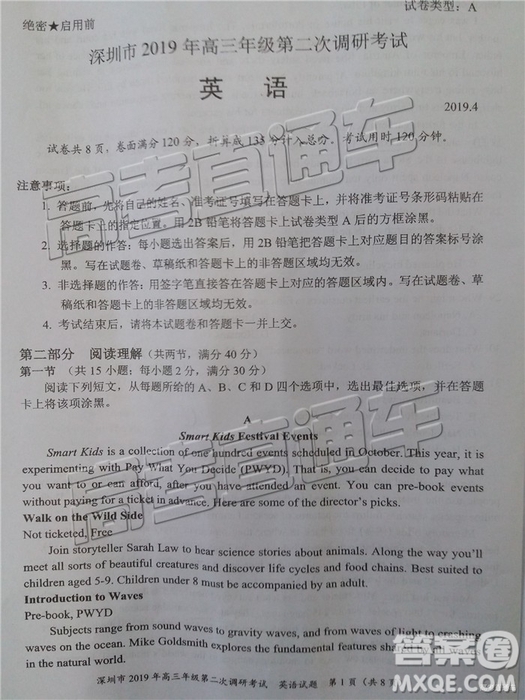 试卷类型：A
绝密★启用前
深圳市2019年高三年级第二次调研考试
英 语
2019.4
试卷共8页，卷面满分120分，折算成135分计入总分。考试用时120分钟。
注意事项：
1. 答题前，先将自己的姓名、准考证号填写在答题卡上，并将准考证号条形码粘贴在
答题卡上的指定位置，用2B铅笔将答题卡上试卷类型A后的方框涂黑。
2. 选择题的作答：每小题选出答案后，用2B铅笔把答题卡上对应题目的答案标号涂
黑。写在试题卷、草稿纸和答题卡上的非答题区域均无效。
3. 非选择题的作答：用签字笔直接答在答题卡上对应的答题区域内。写在试题卷、草
稿纸和答题卡上的非答题区域均无效。
4. 考试结束后，请将本试题卷和答题卡一并上交。
第二部分 阅读理解（共两节，满分40分）
第一节 （共15小题；每小题2分，满分30分）
阅读下列短文，从每题所给的A、B、C和D四个选项中，选出最佳选项，并在答题
卡上将该项涂黑。
A
Smart Kids Festival Events
Smart Kids is a collection of one hundred events scheduled in October. This year, it is
experimenting with Pay What You Decide (PWYD). That is, you can decide to pay what
you want to or can afford, after you have attended an event. You can pre-book events
without paying for a ticket in advance. Here are some of the director's picks.
Walk on the Wild Side
Not ticketed, Free
Join storyteller Sarah Law to hear science stories about animals. Along the way you'll
meet all sorts of beautiful creatures and discover life cycles and food chains. Best suited to
children aged 5-9. Children under 8 must be accompanied by an adult.
Introduction to Waves
Pre-book, PWYD
Subjects range from sound waves to gravity waves, and from waves of light to crashing
waves on the ocean. Mike Goldsmith explores the fundamental features shared by all waves
in the natural world.
深圳市2019年高三年级第二次调研考试 英语试题 第1页（共8
高考直通车
高考直通车
答案圈